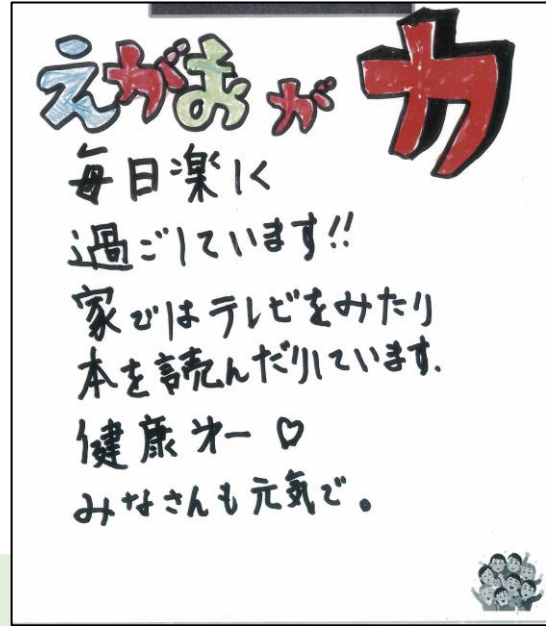 えがおが力
毎日楽しく
過ごしています!!
家ではテレビをみたり
本を読んだりしています.
健康オー♡
みなさんも元気で。